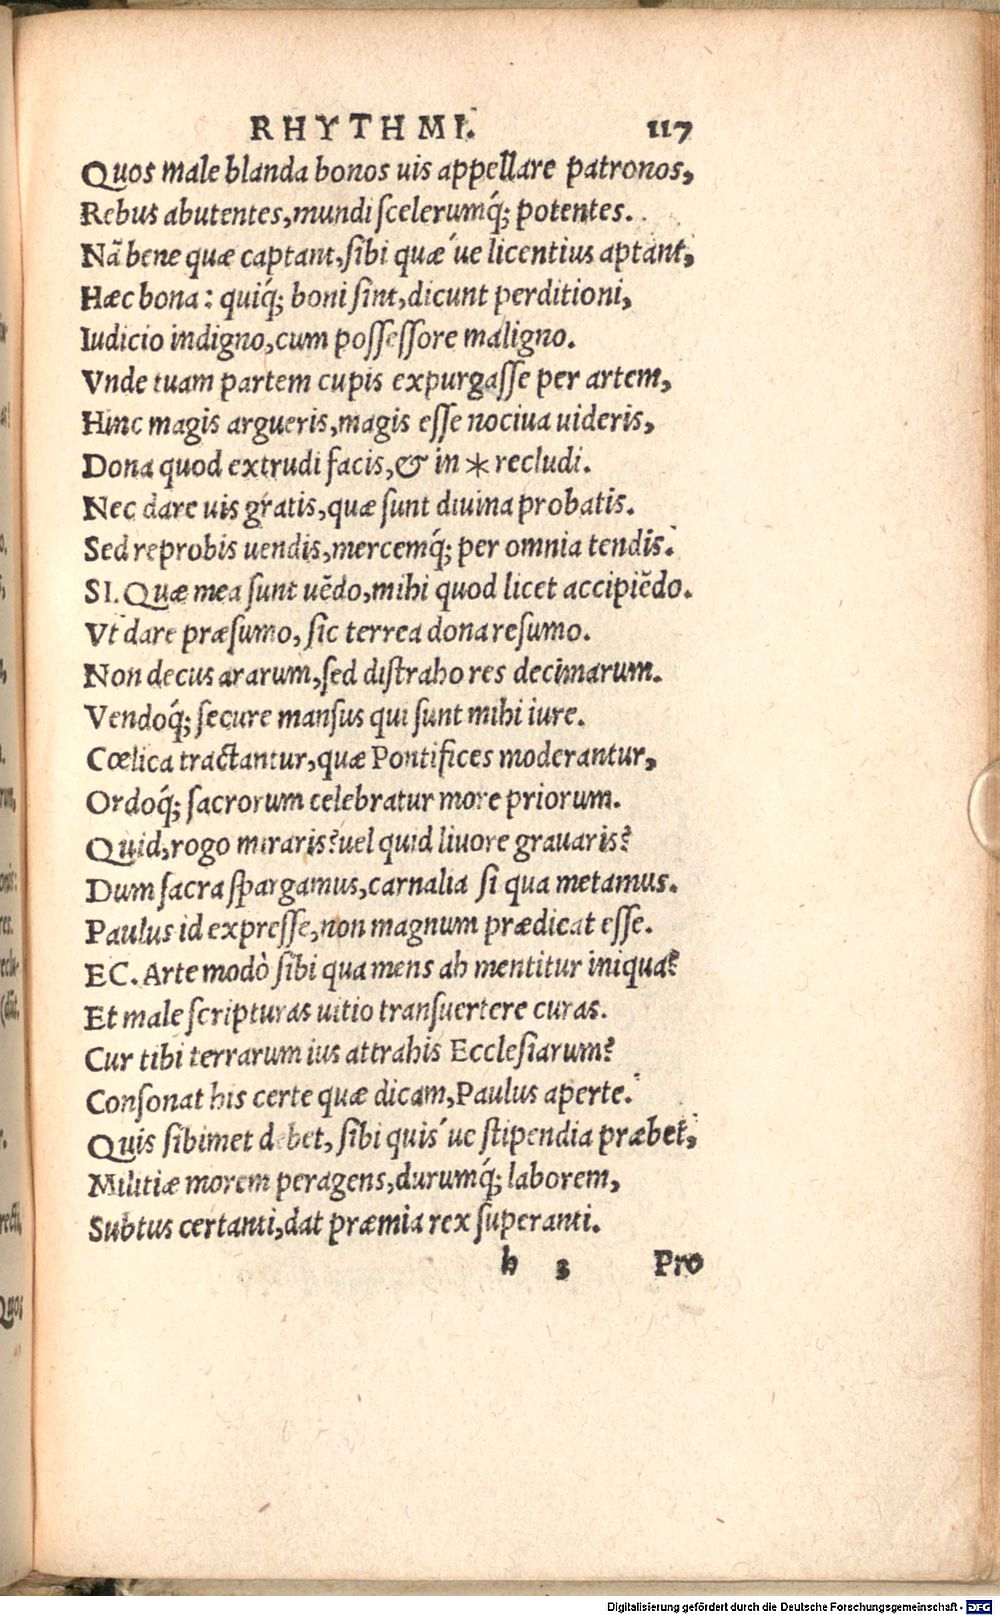 RHYTHMI. 117
Quos male blanda bonos uis appellare patronos,
Rebus abutentes, mundi scelerumq́; potentes.
Nã bene quæ captant, sibi quæ´ue licentius aptant,
Hæc bona: quiq́; boni sint, dicunt perditioni,
Iudicio indigno, cum possessore maligno.
Vnde tuam partem cupis expurgasse per artem,
Hinc magis argueris, magis esse nociua uideris,
Dona quod extrudi facis, & in * recludi.
Nec dare uis gratis, quæ sunt diuina probatis.
Sed reprobis uendis, mercemq́; per omnia tendis.
SI. Quæ mea sunt uẽdo, mihi quod licet accipiẽdo.
Vt dare præsumo, sic terrea dona resumo.
Non decus ararum, sed distraho res decimarum.
Vendoq́; secure mansus qui sunt mihi iure.
Cœlica tractantur, quæ Pontifices moderantur,
Ordoq́; sacrorum celebratur more priorum.
Quid, rogo miraris? uel quid liuore grauaris?
Dum sacra spargamus, carnalia si qua metamus.
Paulus id expresse, non magnum prædicat esse.
EC. Arte modò sibi qua mens ah mentitur iniqua?
Et male scripturas uitio transuertere curas.
Cur tibi terrarum ius attrahis Ecclesiarum?
Consonat his certe quæ dicam, Paulus aperte.
Quis sibimet debet, sibi quis´ue stipendia præbet,
Militiæ morem peragens, durumq́; laborem,
Subtus certanti, dat præmia rex superanti.
h 3 Pro
Digitalisierung gefördert durch die Deutsche Forschungsgemeinschaft - DFG